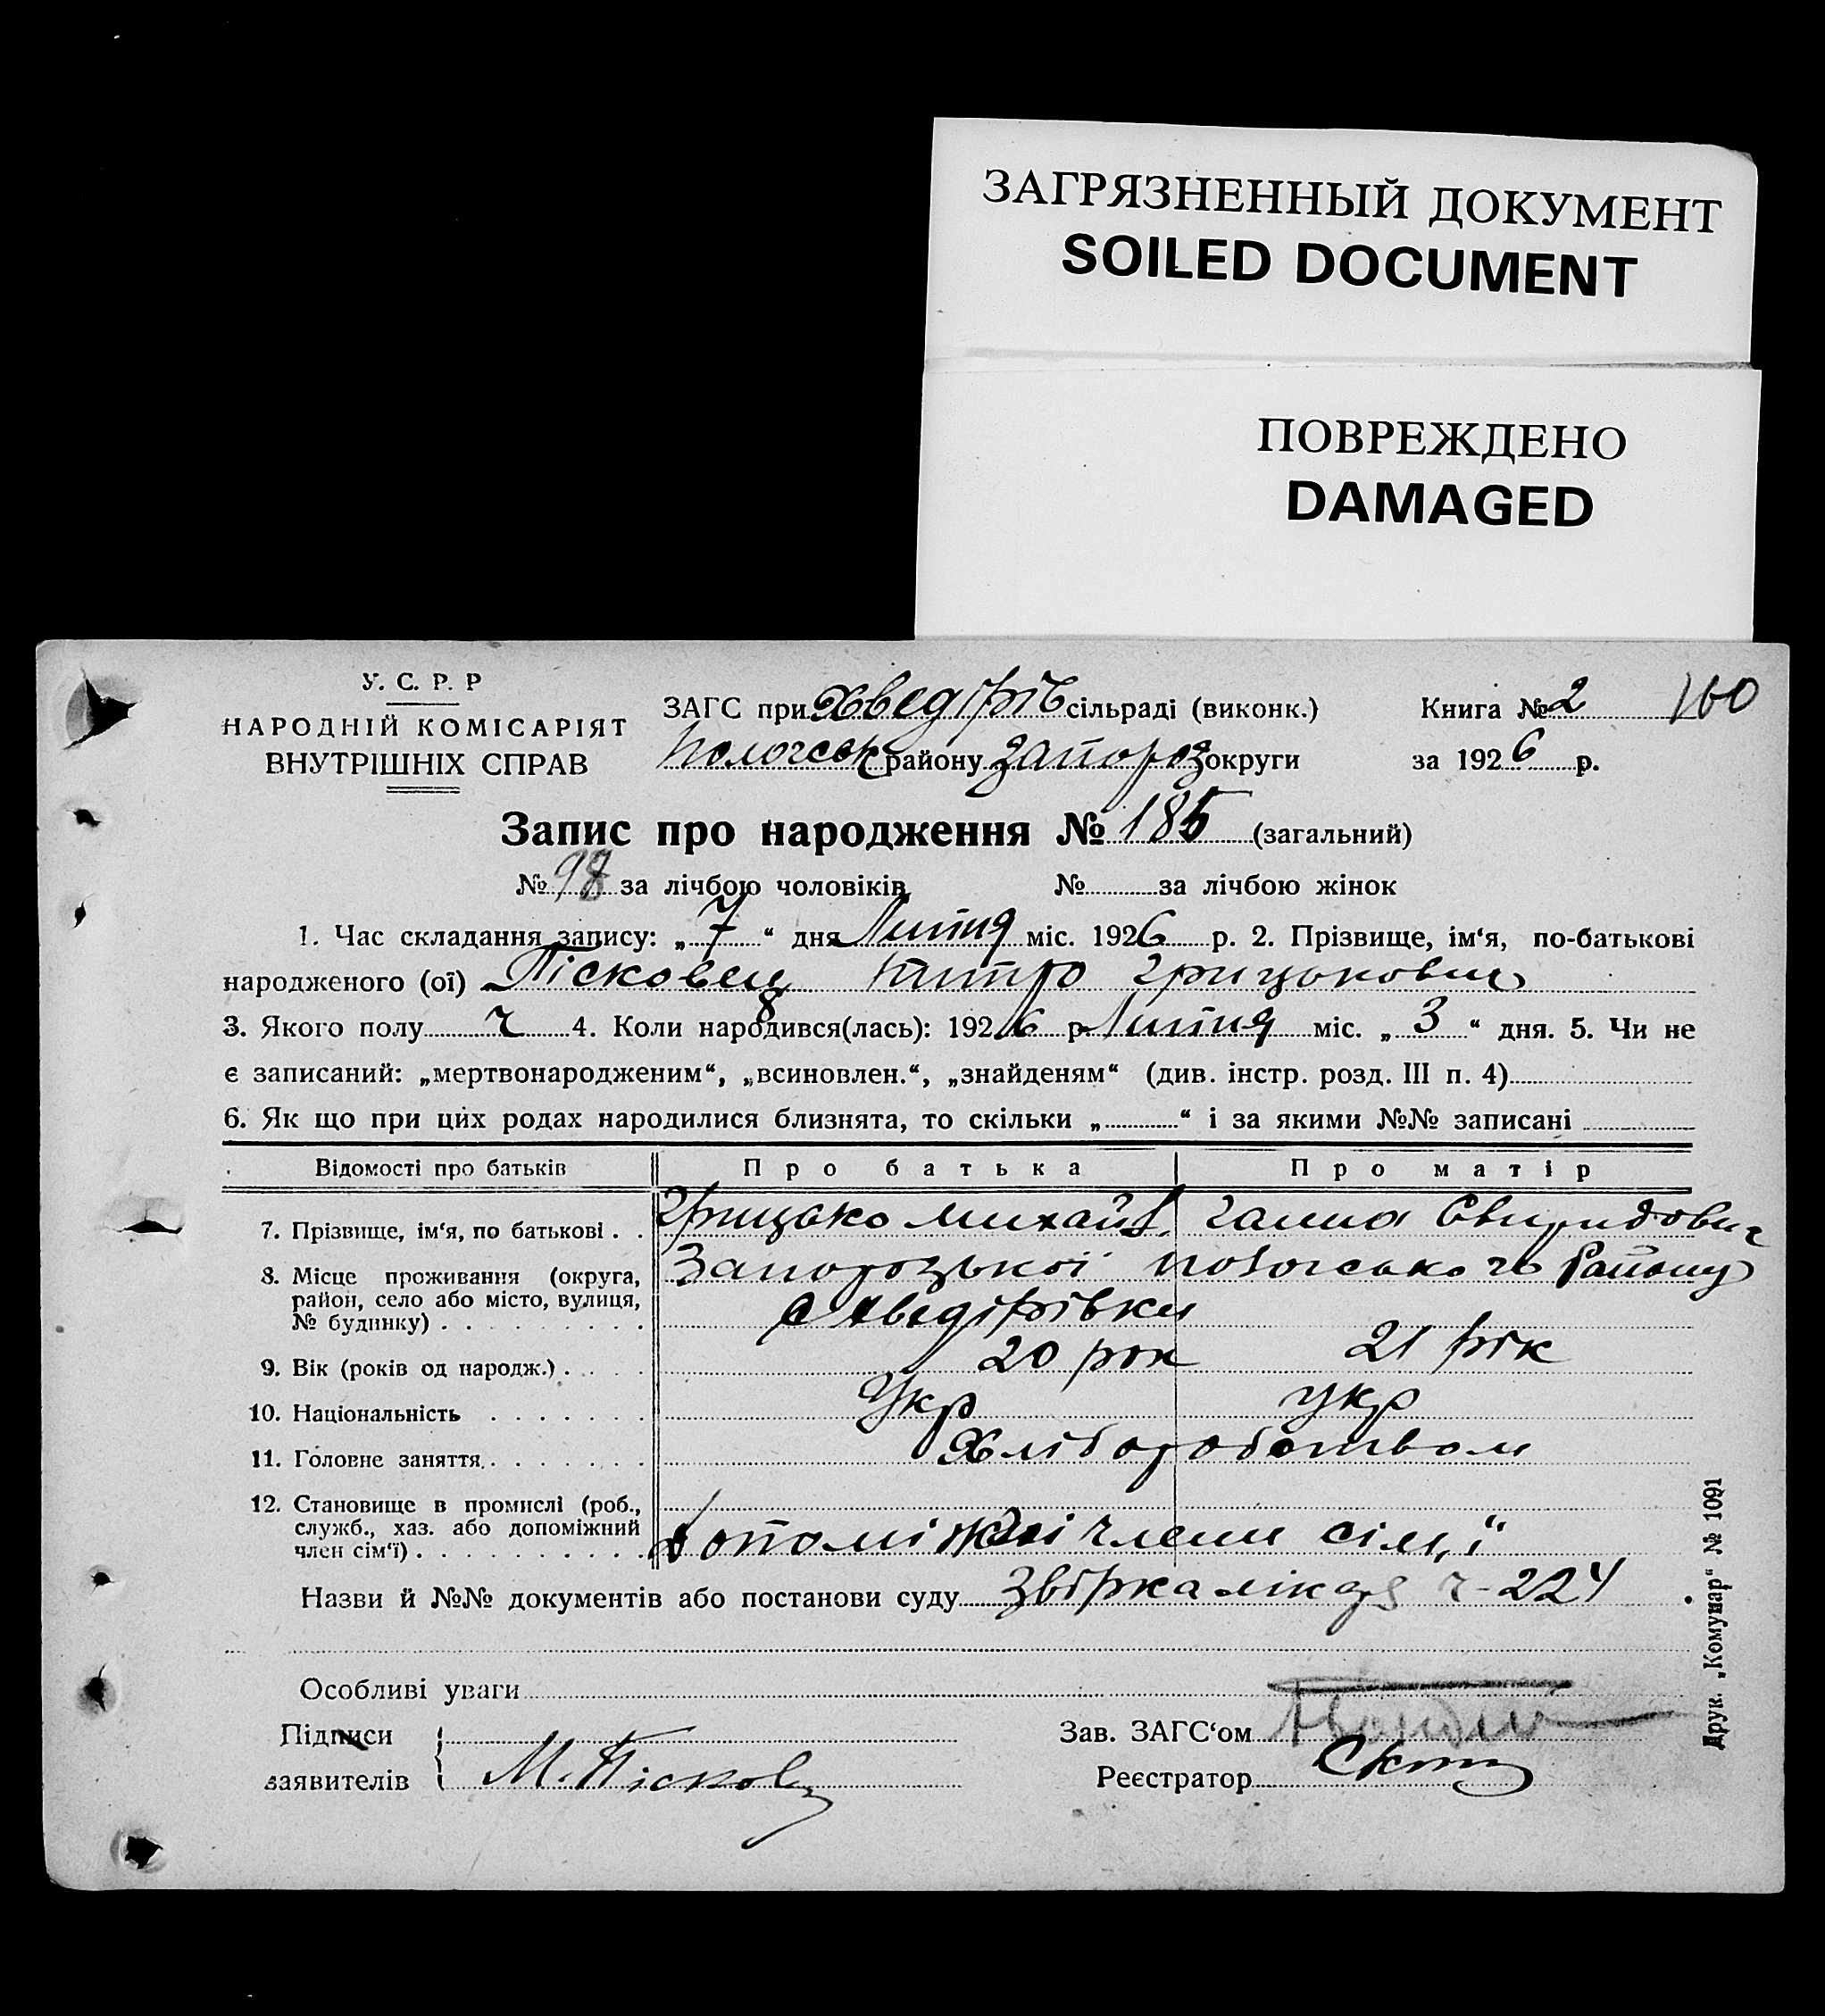 ЗАГРЯЗНЕННЫЙ ДОКУМЕНТ
SOILED DOCUMENT
ПОВРЕЖДЕНО
DAMAGED
У. С. Р. Р
НАРОДНІЙ КОМІСАРІЯТ
ВНУТРІШНІХ СПРАВ
ЗАГС при Хведірів сільраді (виконк.)
Пологськ району Запороз округи
Книга № 2 100
за 1926 р.
Запис про народження № 185 (загальний)
№ 98 за лічбою чоловіків № за лічбою жінок
1. Час складання запису: „ 7 “ дня Липня міс. 1926 р. 2. Прізвище, ім‘я, по-батькові
народженого (ої) Пісковец Грицькович
3. Якого полу ч 4. Коли народився(лась): 1926 р. Липня міс. „ 3 “ дня. 5. Чи не
є записаний: „мертвонародженим“, „всиновлен.“, „знайденям“ (див. інстр. розд. III п. 4)
6. Як що при цих родах народилися близнята, то скільки „ “ і за якими №№ записані
Відомості про батьків Про батька Про матір
7. Прізвище, ім‘я, по батькові . . Грицько Михайл. Галина Свиридович
8. Місце проживання (округа, Запорозької пологського Району
район, село або місто, вулиця,
№ будинку) . . . . . . . . . с Хведірівки
9. Вік (років од народж.) . . . . 20 рок 21 рік
10. Національність . . . . . . . Укр укр
11. Головне заняття . . . . . . . Хліборобством
12. Становище в промислі (роб.,
служб., хаз. або допоміжний
член сім‘ї) . . . . . . . . . . допоміжні члени сім,ї
Назви й №№ документів або постанови суду ч-224
Особливі уваги
Підписи
заявителів М. Písковец
Зав. ЗАГС‘ом
Реєстратор
Друк. „Комунар“ № 1091